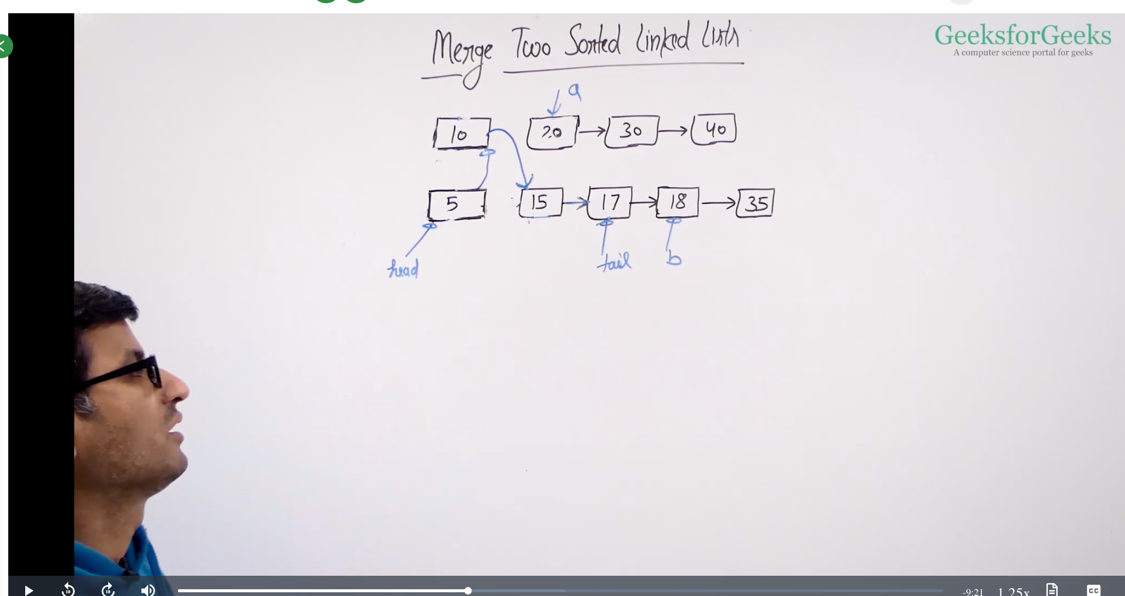 Merge Two Sorted Linked Lists
GeeksforGeeks
A computer science portal for geeks
a
10 20 30 40
5 15 17 18 35
head tail b
-9:21 1.25x CC